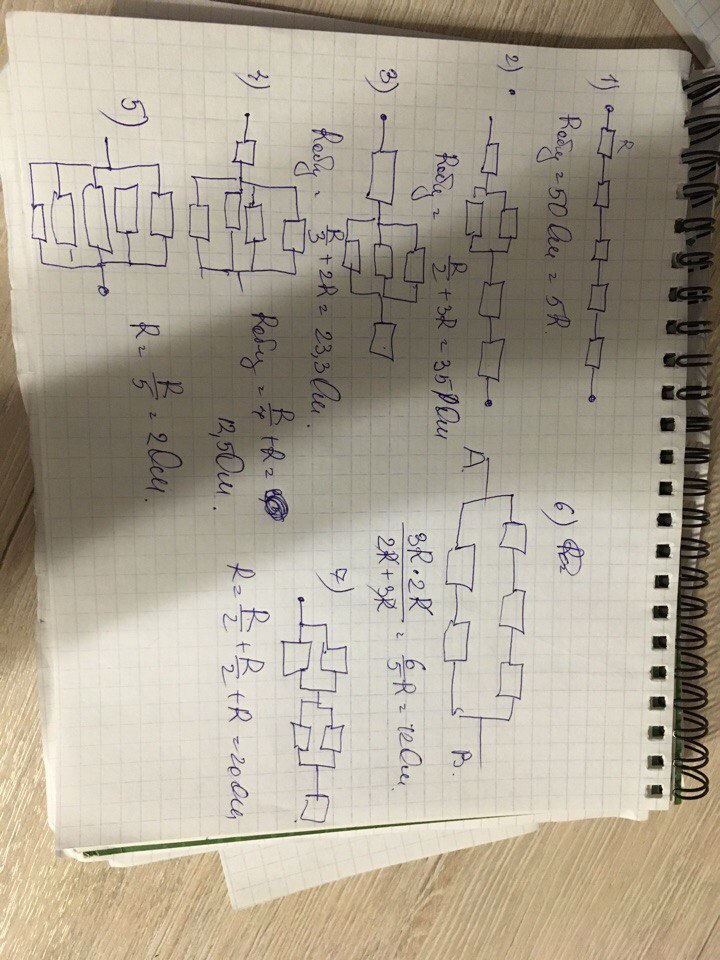 1)
R
Rобщ = 50 Ом = 5R.
2)
Rобщ = R/2 + 3R = 35 Ом
3)
Rобщ = R/3 + 2R = 23,3 Ом.
4)
Rобщ = R/4 + R =
12,5 Ом.
5)
R = R/5 = 2 Ом.
6)
A.
B.
3R · 2R / 2R + 3R = 6/5 R = 12 Ом.
7)
R = R/2 + R/2 + R = 20 Ом